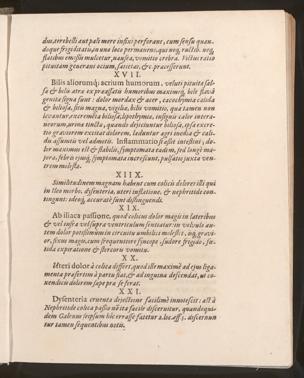 duo, terebelli aut pali mere infixi perforant, cum sensu quan-
doque frigiditatis, in una loco permanent, quo neq; ructib. neq;
flatibus emissis mulcetur, nausea, vomitus crebra. Victus ratio
pituitam generans ocium, satietas, & c. præcesserunt.
XVII.
Bilis aliorumq; acrium humorum, veluti pituitæ sal-
sæ & bilis atra ex præassatis humoribus maximeq; bile flavâ
genita signa sunt: dolor mordax & acer, cacochymia calida
& biliosa, sitis magna, vigilia, bilis vomitio, quæ tamen non
levantur, extremeta biliosa, lipothymia, insignis calor interra-
neorum, urina tincta, quando dejiciuntur biliosa, ipsa excre-
tio graviorem excitat dolorem, leduntur agri inedia & cali-
dis assumtis vel admotis. Inflammatio si adsit intestini, do-
lor maximus est & stabilis, symptomata eadem, sed longè ma-
jora, febris ejusq; symptomata increscunt, pulsatio juxta ven-
trem molesta.
XIIX.
Similitudinem magnam habent cum colicis dolores illi qui
in Ileo morbo, dysenteria, uteri inflatione, & nephritide con-
tingunt: ideoq; accuratè sunt distinguendi.
XIX.
Ab iliaca passione, quod colicus dolor magis in lateribus
& vel supra vel supra ventriculum sentiatur: in volvulo au-
tem dolor potissimum in circuitu umbilici molestet, isq; gravi-
or, fixus magis, cum frequentiore syncope, sudore frigido, fœ-
tida expiratione & stercoris vomitu.
XX.
Uteri dolor à colica differt, quod ille maximè ad ejus liga-
menta præsertim à partu fiat, & ad inguina descendat, ut co-
noscendi dolorem sæpe pra se ferat.
XXI.
Dysenteria cruenta dejectione facilimè innotescit: ast à
Nephritide colica passio no ita facile discernitur, quandoqui-
dem Galenus seipsum hic errasse fatetur 2. loc. aff. 5. discernun
tur tamen sequentibus notis.